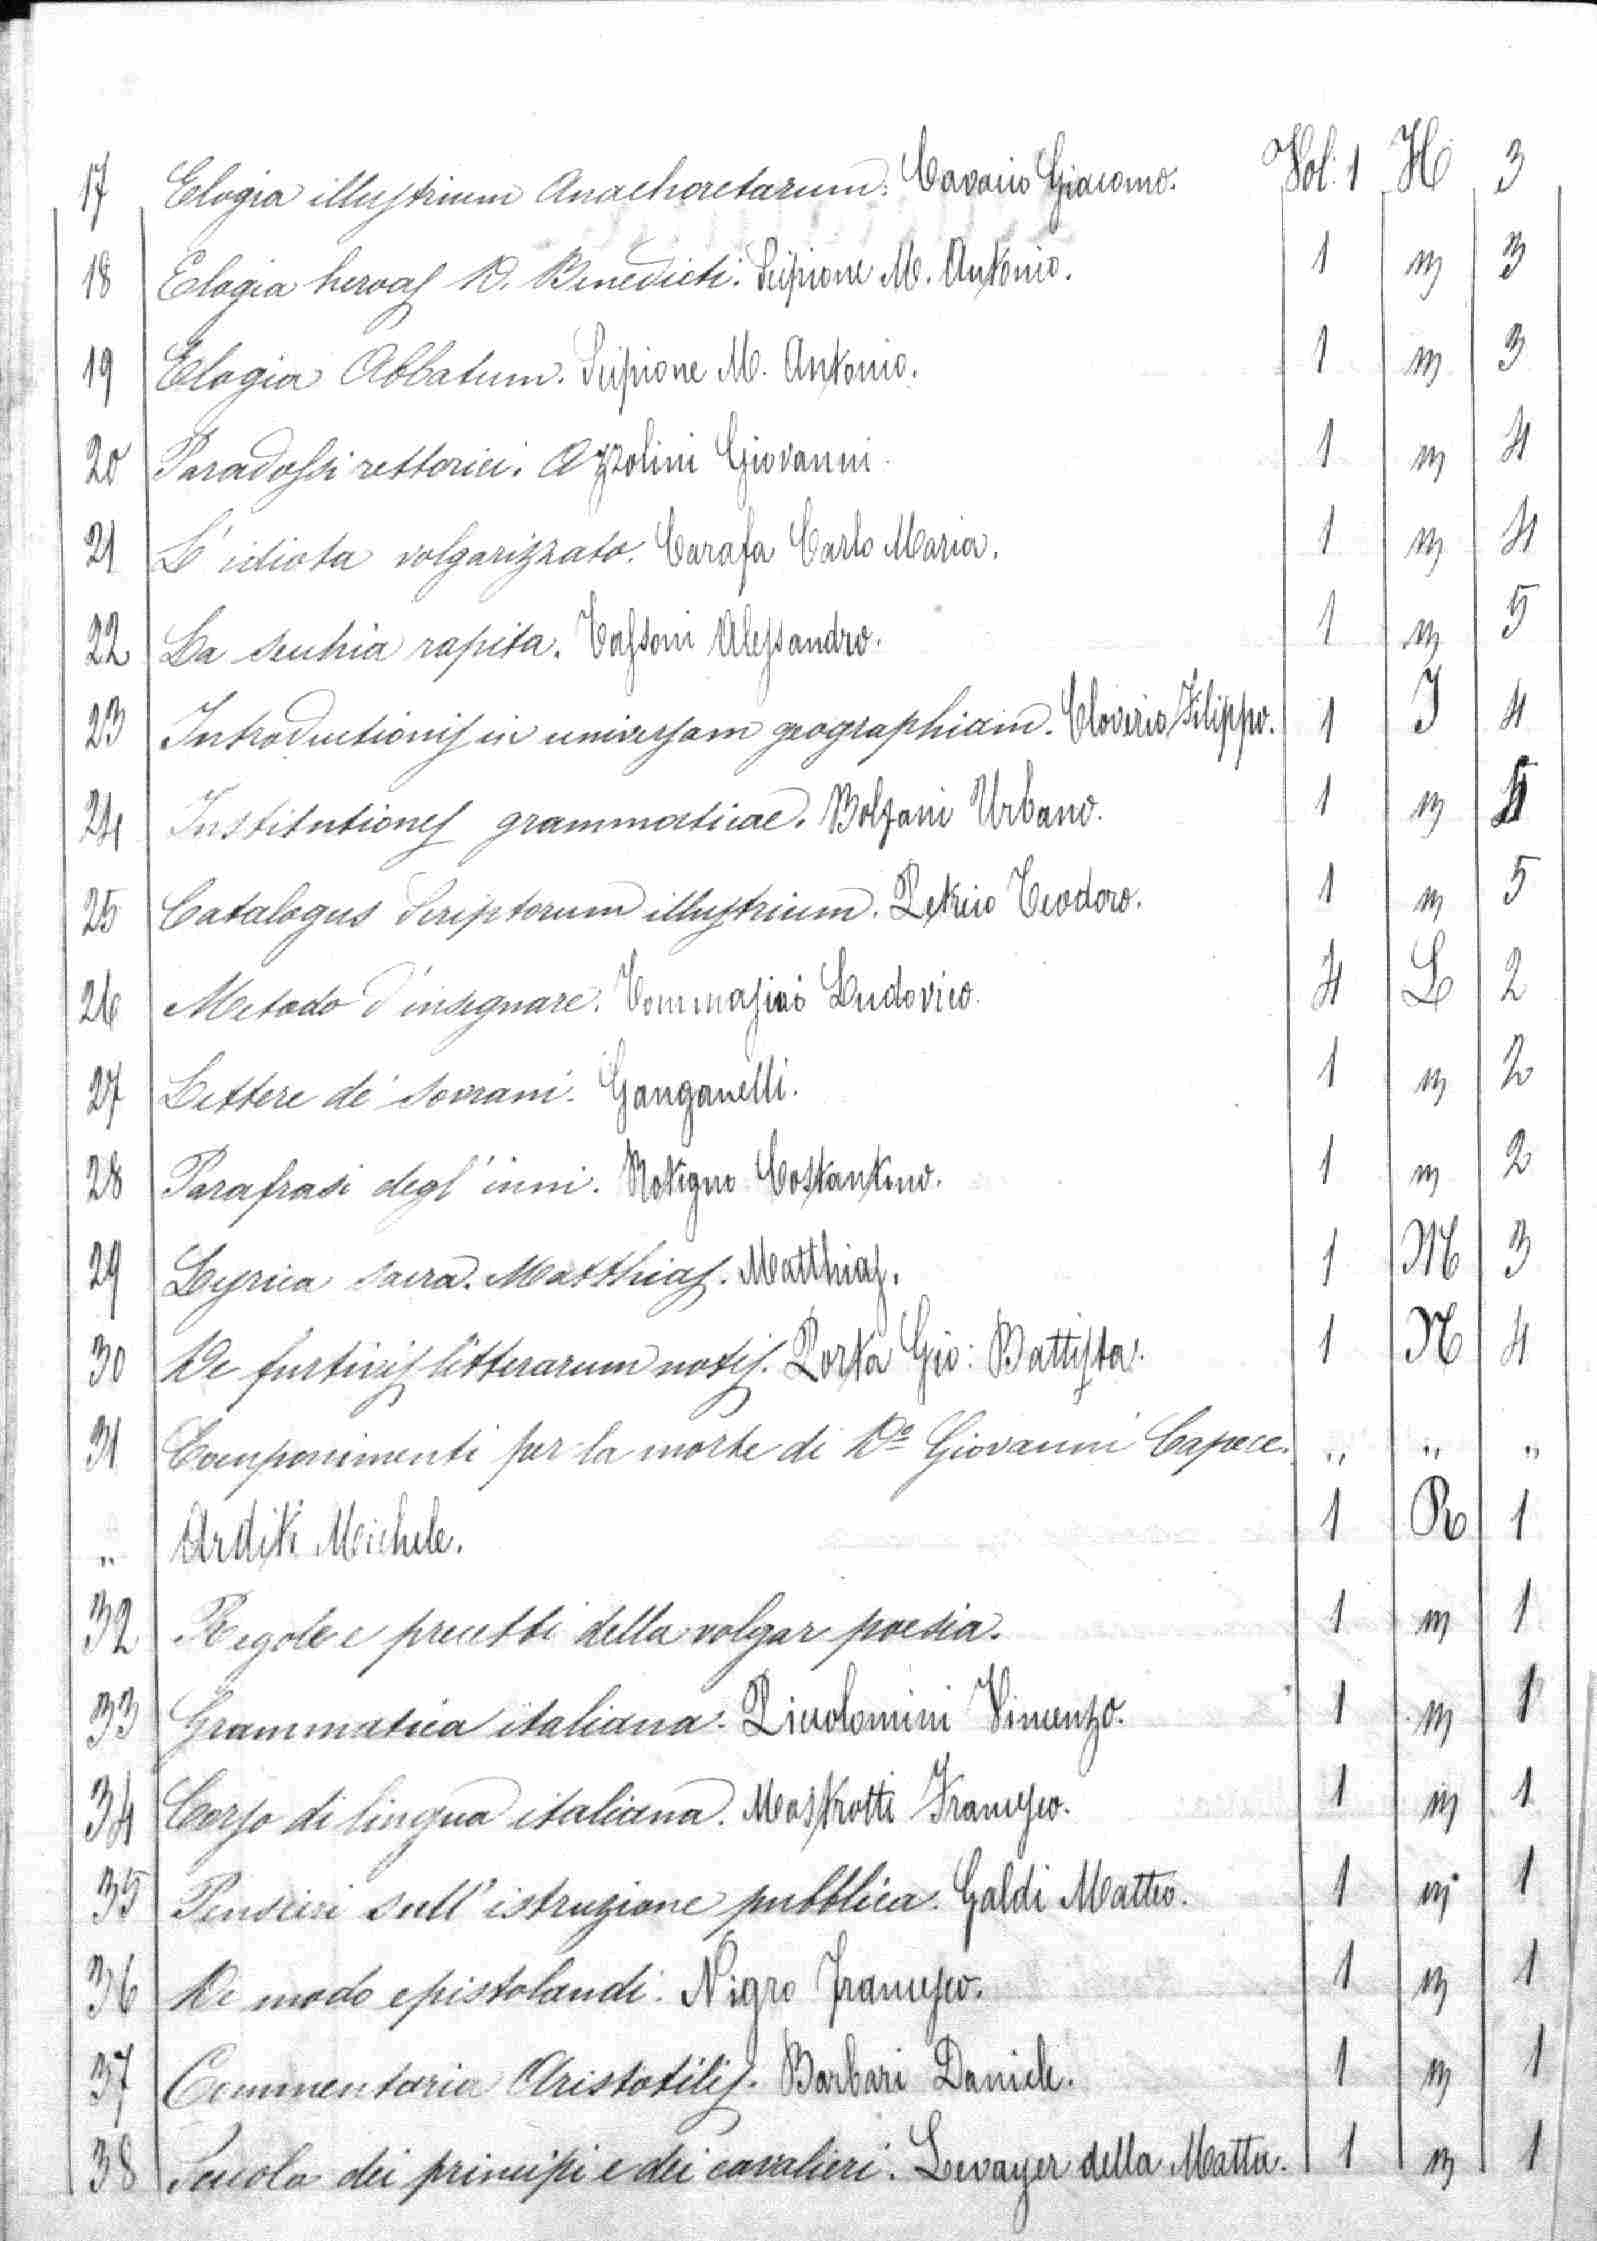 17 Elogia illustrium Anachoretarum. Cavacio Giacomo. Vol. 1 H 3
18 Elogia heroas D. Benedicti. Scipione M. Antonio. 1 m 3
19 Elogia Abbatum. Scipione M. Antonio. 1 m 3
20 Paradossi rettorici. Azzolini Giovanni. 1 m 4
21 L'idiota volgarizzato. Carafa Carlo Maria. 1 m 4
22 La secchia rapita. Tassoni Alessandro. 1 m 5
23 Introductionis in universam geographiam. Cloverio Filippo. 1 I 4
24 Institutiones grammaticae. Bolzani Urbano. 1 m 5
25 Catalogus Scriptorum illustrium. Petreio Teodoro. 1 m 5
26 Metodo d'insegnare. Tommasini Ludovico. 4 L 2
27 Lettere de' sovrani. Ganganelli. 1 m 2
28 Parafrasi degl'inni. Costantino. 1 m 2
29 Lyrica sacra. Matthias. Matthias. 1 M 3
30 De furtivis litterarum notis. Porta Gio: Battista. 1 N 4
31 Componimenti per la morte di Da Giovanni Capece. " " "
" Arditi Michele. 1 R 1
32 Regole e precetti della volgar poesia. 1 m 1
33 Grammatica italiana. Piccolomini Vincenzo. 1 m 1
34 Corso di lingua italiana. Mastrotti Francesco. 1 m 1
35 Pensieri sull'istruzione pubblica. Galdi Matteo. 1 m 1
36 De modo epistolandi. Nigro Francesco. 1 m 1
37 Commentaria Aristotilis. Barbari Daniele. 1 m 1
38 Scuola dei principi e dei cavalieri. Levayer della Matta. 1 m 1